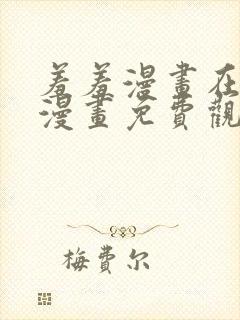 羞羞漫畫在
漫畫免費觀
梅費尔